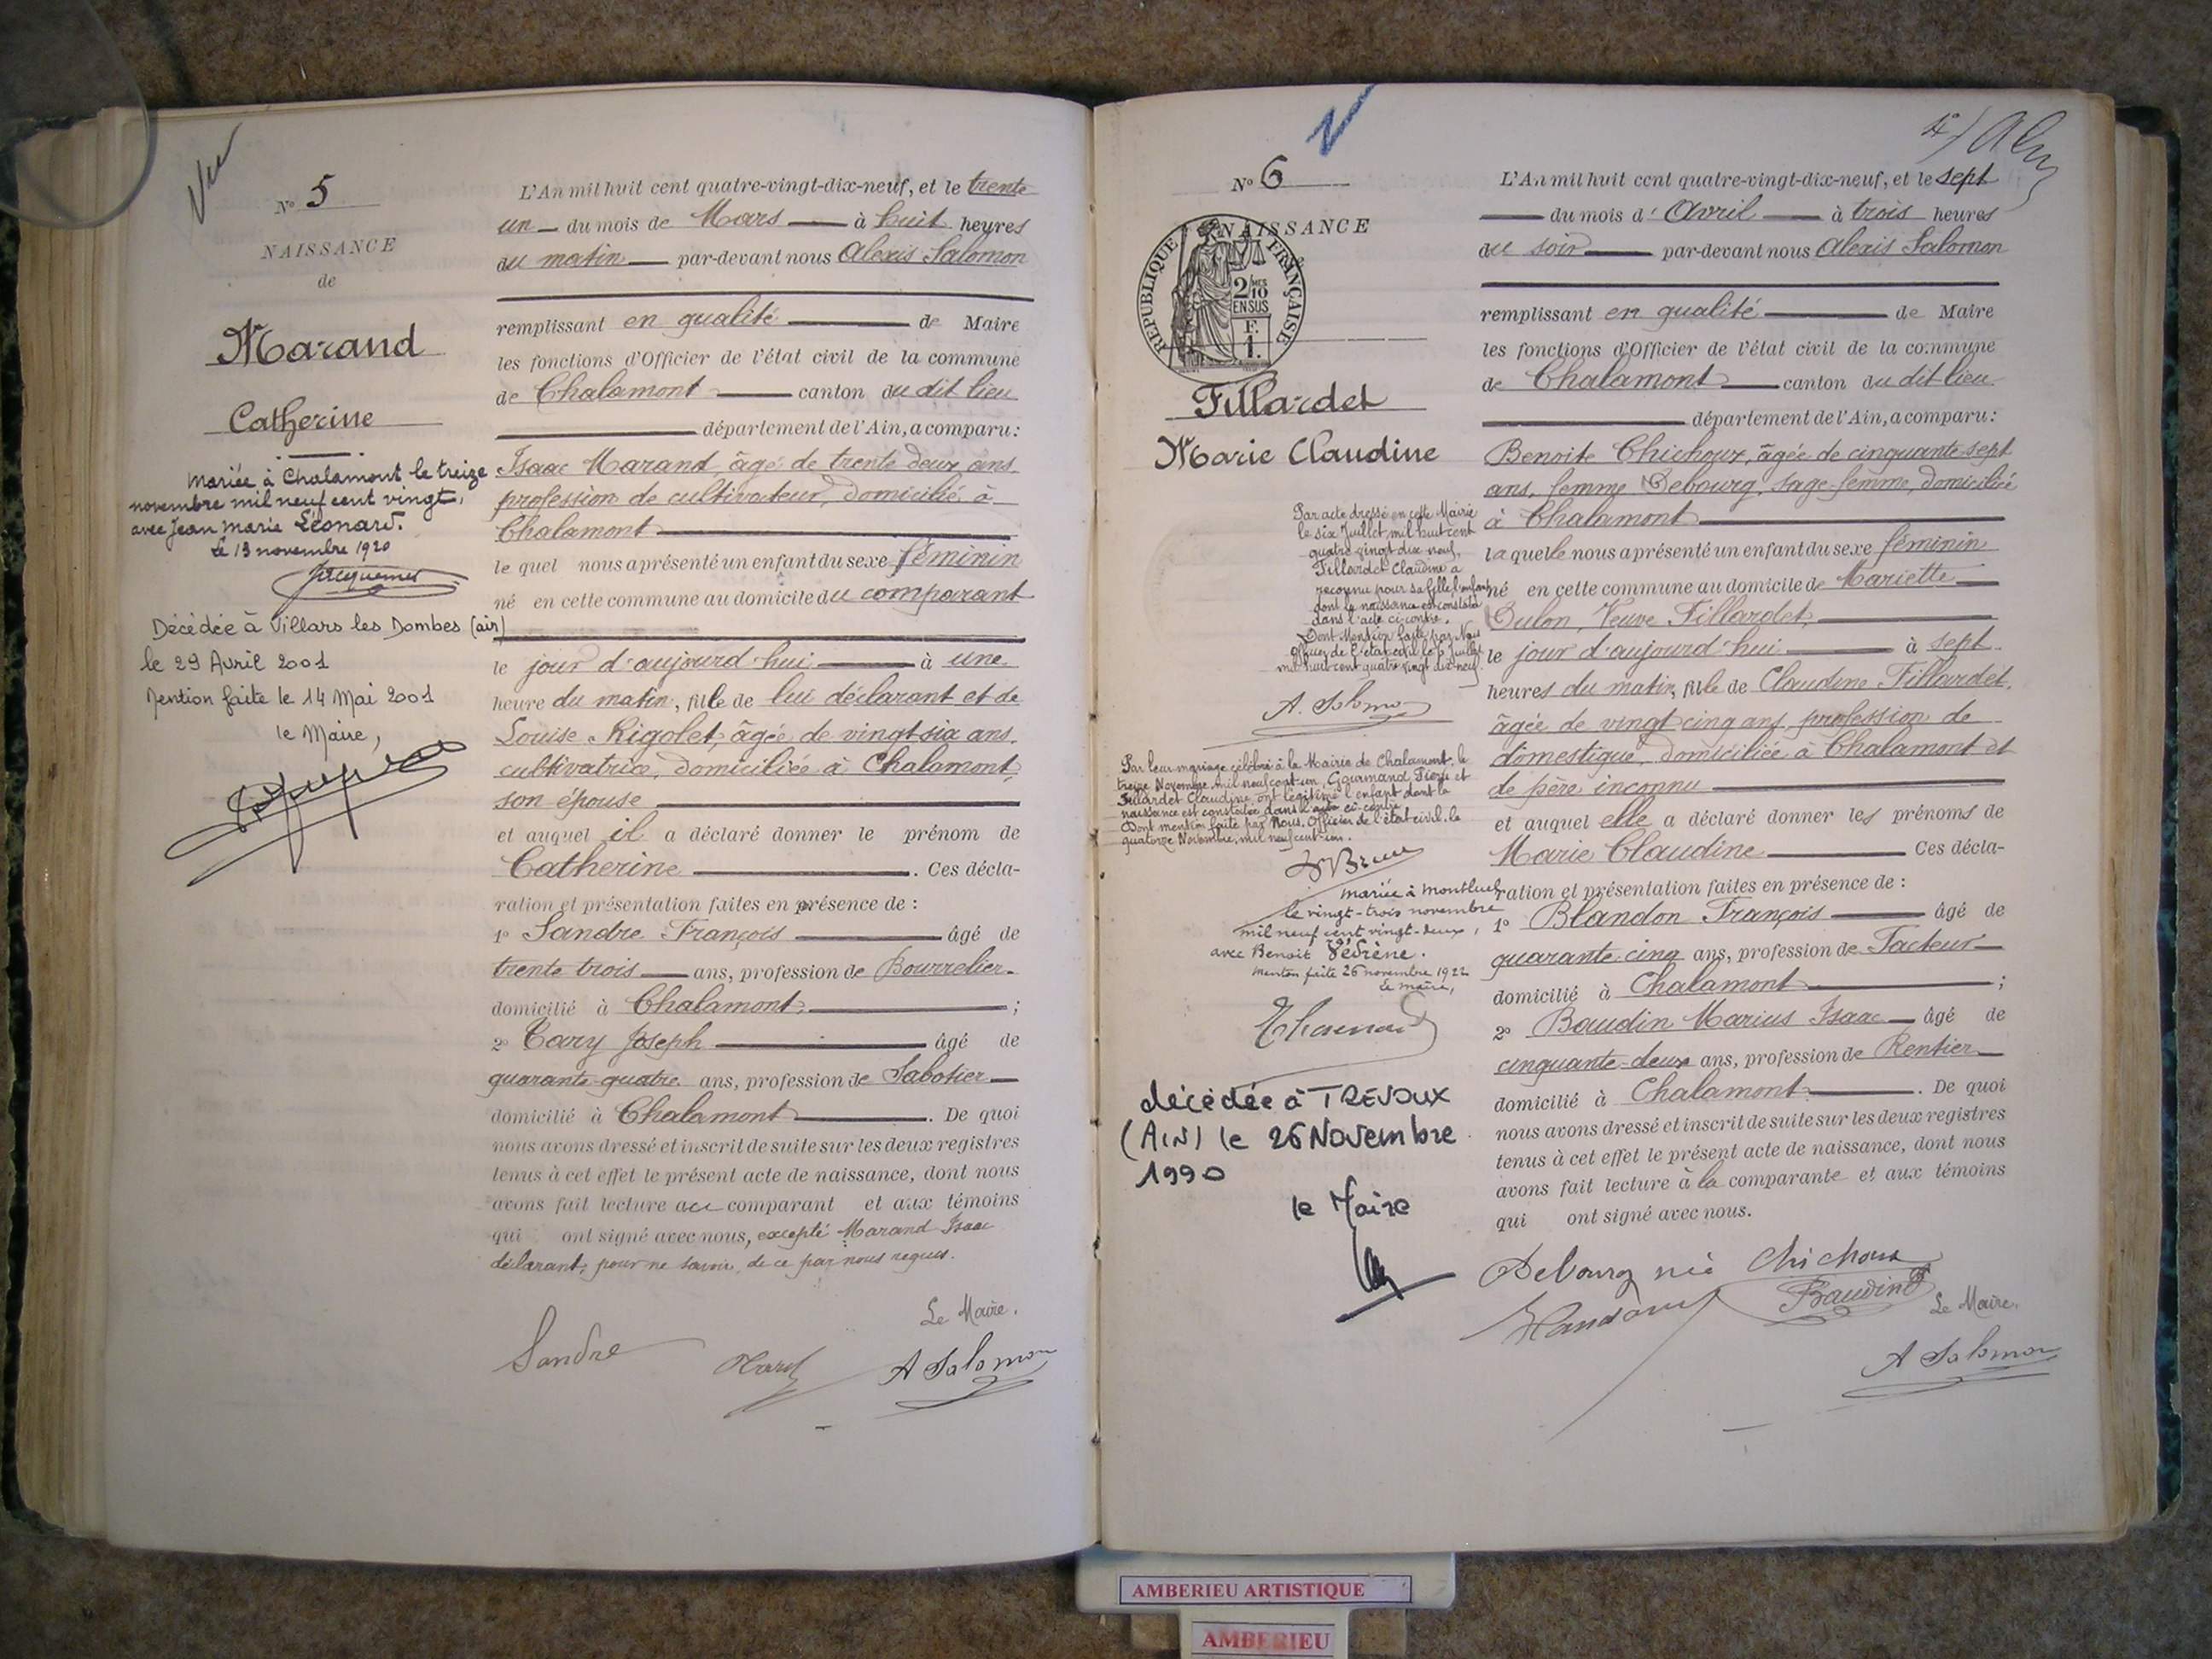 Vu
N° 5
NAISSANCE
de
Marand
Catherine
mariée à Chalamont le treize
novembre mil neuf cent vingt,
avec Jean Marie Léonard.
le 13 novembre 1920
Décédée à Villars les Dombes (ain)
le 29 Avril 2001
Mention faite le 14 Mai 2001
le Maire,
L'An mil huit cent quatre-vingt-dix-neuf, et le trente
un du mois de Mars à huit heures
du matin par-devant nous Alexis Salomon
remplissant en qualité de Maire
les fonctions d'Officier de l'état civil de la commune
de Chalamont canton du dit lieu
département de l'Ain, a comparu :
Isaac Marand, âgé de trente deux ans
profession de cultivateur, domicilié à
Chalamont
le quel nous a présenté un enfant du sexe féminin
né en cette commune au domicile du comparant
le jour d'aujourd'hui à une
heure du matin, fille de lui déclarant et de
Louise Rigolet, âgée de vingt six ans,
cultivatrice, domiciliée à Chalamont,
son épouse
et auquel il a déclaré donner le prénom de
Catherine . Ces décla-
ration et présentation faites en présence de :
1° Sandre François âgé de
trente trois ans, profession de Bourrelier
domicilié à Chalamont ;
2° Cary Joseph âgé de
quarante-quatre ans, profession de Sabotier
domicilié à Chalamont . De quoi
nous avons dressé et inscrit de suite sur les deux registres
tenus à cet effet le présent acte de naissance, dont nous
avons fait lecture au comparant et aux témoins
qui ont signé avec nous, excepté Marand Isaac
déclarant, pour ne savoir, de ce par nous requis.
Le Maire.
Sandre
A Salomon
N° 6
NAISSANCE
REPUBLIQUE FRANÇAISE
2/10 MES
EN SUS
F.
1.
Fillardet
Marie Claudine
Par acte dressé en cette Mairie
le six Juillet mil huit cent
quatre vingt dix neuf,
Fillardet Claudine a
reconnu pour sa fille l'enfant
dont la naissance est constatée
dans l'acte ci-contre.
Dont Mention faite par Nous
Officier de l'état civil le 6 Juillet
mil huit cent quatre vingt dix neuf
A. Salomon
Par leur mariage célébré à la Mairie de Chalamont, le
treize Novembre mil neuf cent un, Gourmand Pierre et
Fillardet Claudine, ont légitimé l'enfant dont la
naissance est constatée dans l'acte ci-contre
Dont mention faite par Nous, Officier de l'état civil, le
quatorze Novembre, mil neuf cent-un.
mariée à Montluel
le vingt-trois novembre
mil neuf cent vingt-deux,
avec Benoit Védrène.
Mention faite 26 novembre 1922
Le maire,
décédée à TREVOUX
(AIN) le 26 Novembre
1990
le Maire
L'An mil huit cent quatre-vingt-dix-neuf, et le sept
du mois d'Avril à trois heures
du soir par-devant nous Alexis Salomon
remplissant en qualité de Maire
les fonctions d'Officier de l'état civil de la commune
de Chalamont canton du dit lieu
département de l'Ain, a comparu :
Benoite Chichoux, âgée de cinquante sept
ans, femme Debourg, sage-femme, domiciliée
à Chalamont
la quelle nous a présenté un enfant du sexe féminin
né en cette commune au domicile de Mariette
Culon, Veuve Fillardet,
le jour d'aujourd'hui à sept
heures du matin, fille de Claudine Fillardet,
âgée de vingt cinq ans, profession de
domestique, domiciliée à Chalamont et
de père inconnu
et auquel elle a déclaré donner les prénoms de
Marie Claudine Ces décla-
ration et présentation faites en présence de :
1° Blandon François âgé de
quarante cinq ans, profession de Facteur
domicilié à Chalamont ;
2° Baudin Marius Isaac âgé de
cinquante-deux ans, profession de Rentier
domicilié à Chalamont . De quoi
nous avons dressé et inscrit de suite sur les deux registres
tenus à cet effet le présent acte de naissance, dont nous
avons fait lecture à la comparante et aux témoins
qui ont signé avec nous.
Debourg née Chichoux
Baudin
Le Maire.
A Salomon
AMBERIEU ARTISTIQUE
AMBERIEU